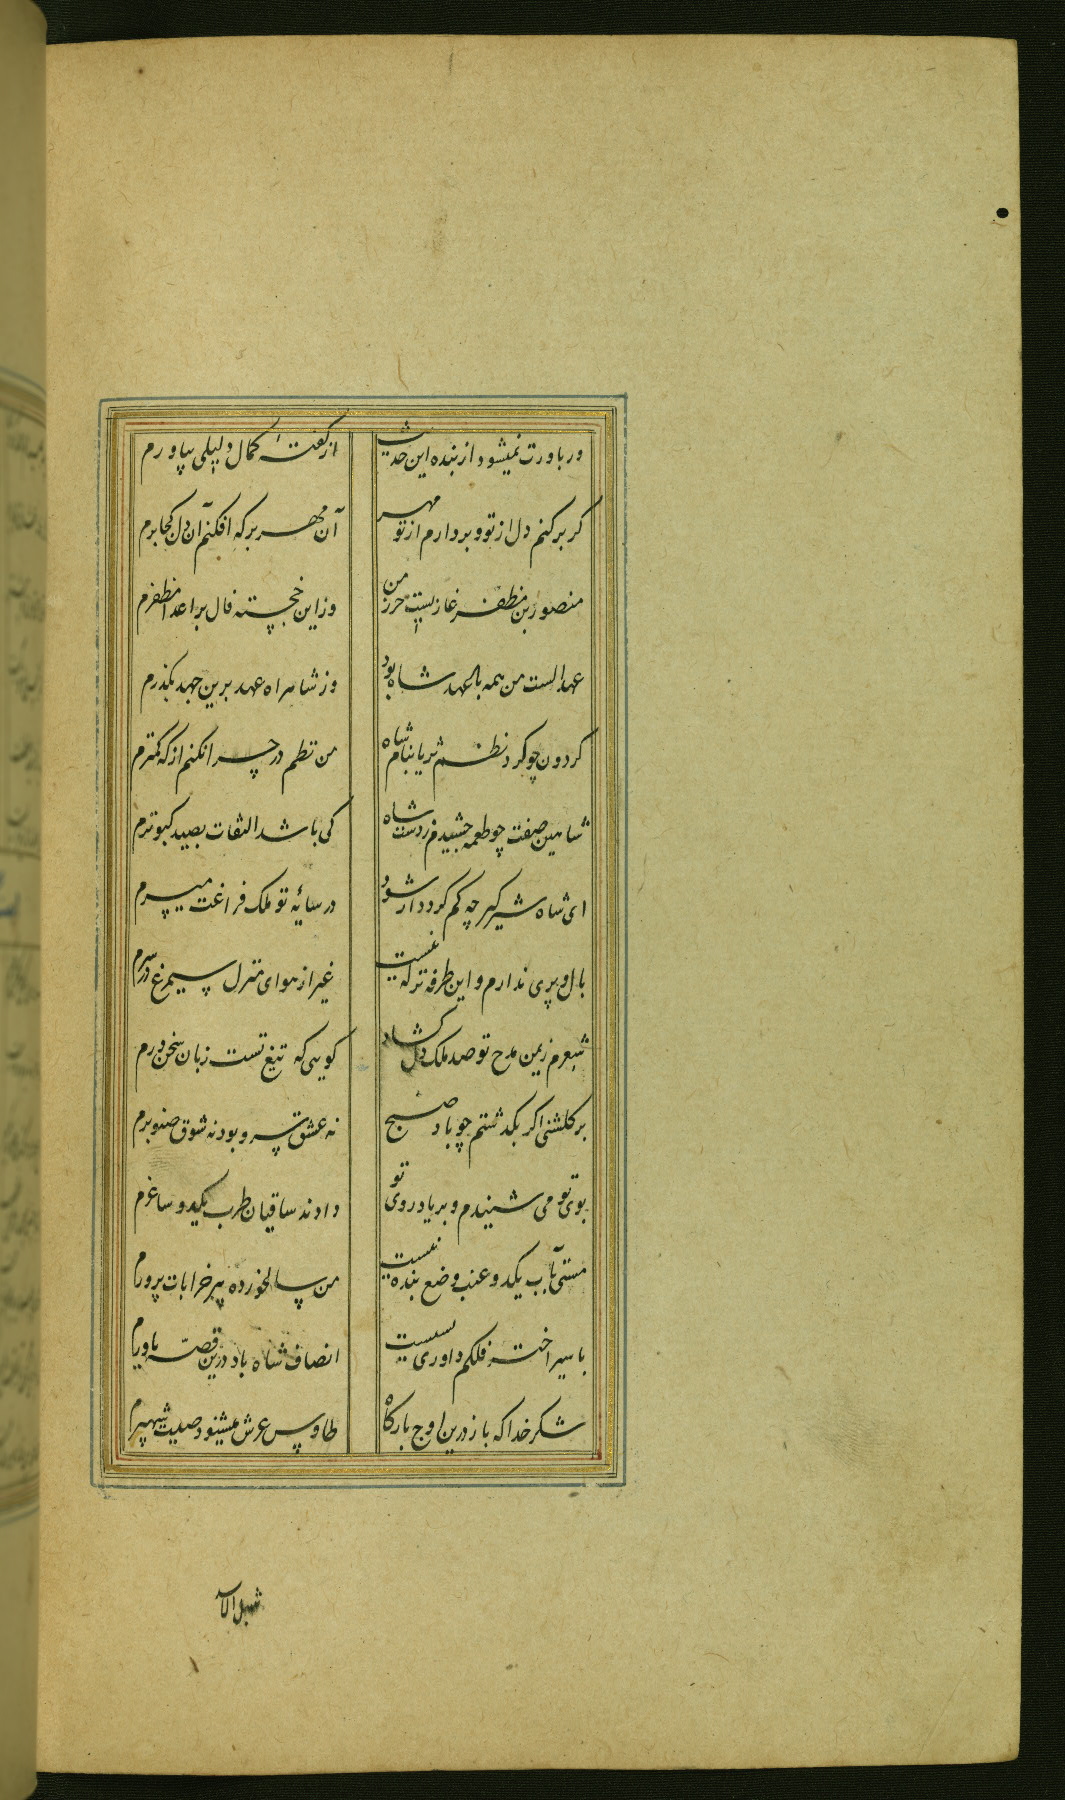 ور باورت نمیشود از بنده این حدیث از گفتهٔ کمال دلیلی بیاورم
کر برکنم دل از تو و بردارم از تو مهر آن مهر بر که افکنم آن دل کجا برم
منصور بن مظفر غازیست حرز من وز این خجسته فال بر اعدا مظفرم
عهد الست من همه با عهد شاه بود وز شاهراه عهد برین جهد بکذرم
کردون چو کرد نظم ثریا بنام شاه من نظم در چرا نکنم از که کمترم
شاهین صفت چو طعمه چشیدم ز دست شاه کی باشد التفات بصید کبوترم
ای شاه شیر کیر چه کم کردد ار شود در سایهٔ تو ملک فراغت میسرم
بال و پری ندارم و این طرفه تر که نیست غیر از هوای منزل سیمرغ در سرم
شعرم زیمن مدح تو صد ملک دل کشاد کویی که تیغ تست زبان سخن ورم
بر کلشنی اکر بکذشتم چو باد صبح نه عشق سرو بود نه شوق صنوبرم
بوی تو می شنیدم و بر یاد روی تو دادند ساقیان طرب یکدو ساغرم
مستی بآب یکدو عنب وضع بنده نیست من سالخورده پیر خرابات پرورم
با سیر اختر فلکم داوری بسیست انصاف شاه باد درین قصه یاورم
شکر خدا که باز درین اوج بارکاه طاوس عرش میشنود صیت شهپرم
شبل الاسد